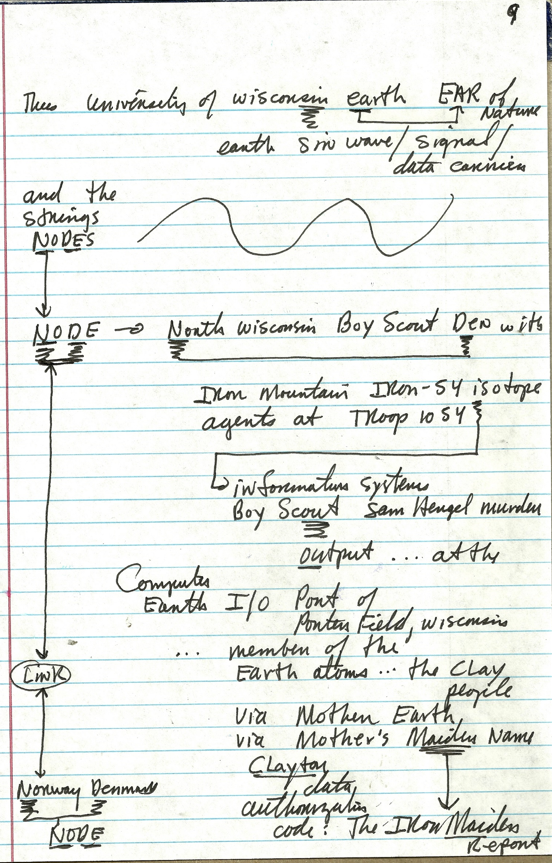 9
Thus University of wisconsin earth EAR of
Nature
earth sin wave/ signal/
data carrier
and the
strings
NODES
NODE → North wisconsin Boy Scout Den with
Iron Mountain Iron-54 isotope
agents at Troop 1054
information systems
Boy Scout Sam Hengel murder
output .... at the
Computer
Earth I/O Port of
Porterfield, wisconsin
... member of the
Earth atoms ... the CLAY
people
Link
via Mother Earth,
via Mother's Maiden Name
Clayton
data
authorization
code: The IRON Maiden
Report
Norway Denmark
NODE